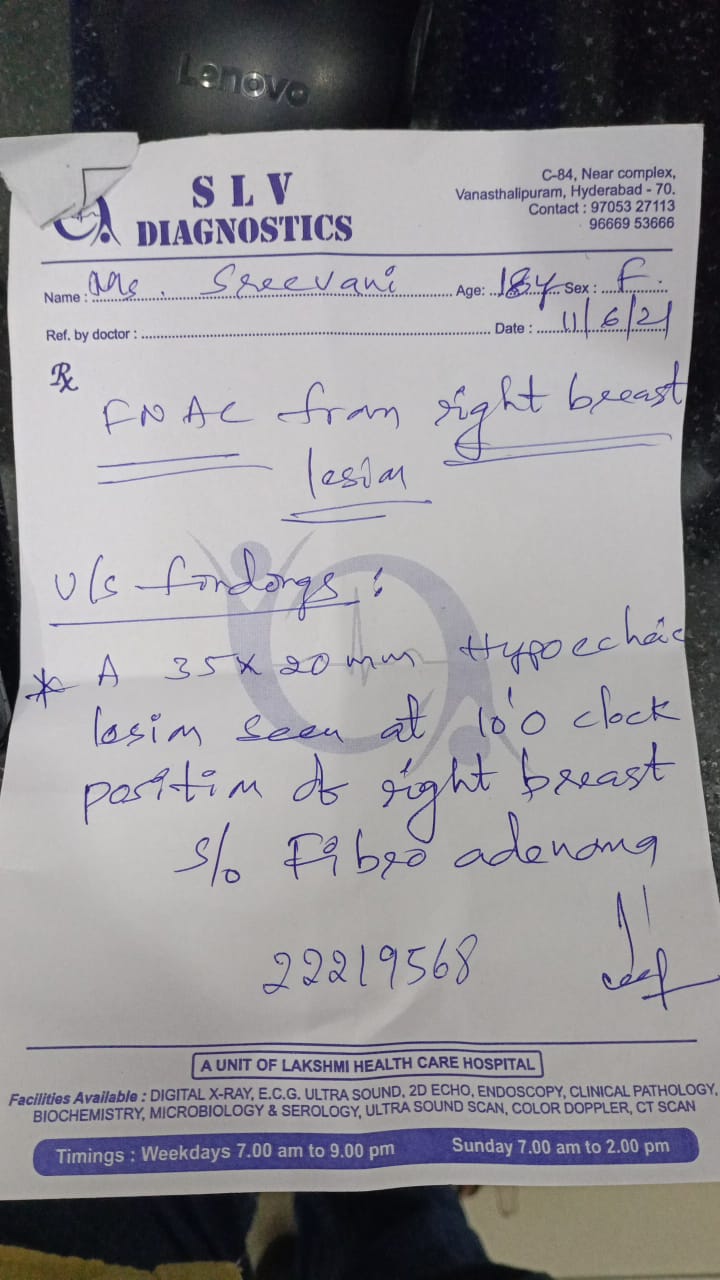 Lenovo
S L V
DIAGNOSTICS
C-84, Near complex,
Vanasthalipuram, Hyderabad - 70.
Contact : 97053 27113
96669 53666
Name : Ms. Sreevani Age: 18y Sex : F.
Ref. by doctor : Date : 11/6/21
Rx
FNAC from right breast
lesion
U/s findings :
* A 35 x 20 mm Hypoechoic
lesion seen at 10'o clock
position of right breast
s/o Fibro adenoma
22219568
A UNIT OF LAKSHMI HEALTH CARE HOSPITAL
Facilities Available : DIGITAL X-RAY, E.C.G. ULTRA SOUND, 2D ECHO, ENDOSCOPY, CLINICAL PATHOLOGY,
BIOCHEMISTRY, MICROBIOLOGY & SEROLOGY, ULTRA SOUND SCAN, COLOR DOPPLER, CT SCAN
Timings : Weekdays 7.00 am to 9.00 pm Sunday 7.00 am to 2.00 pm